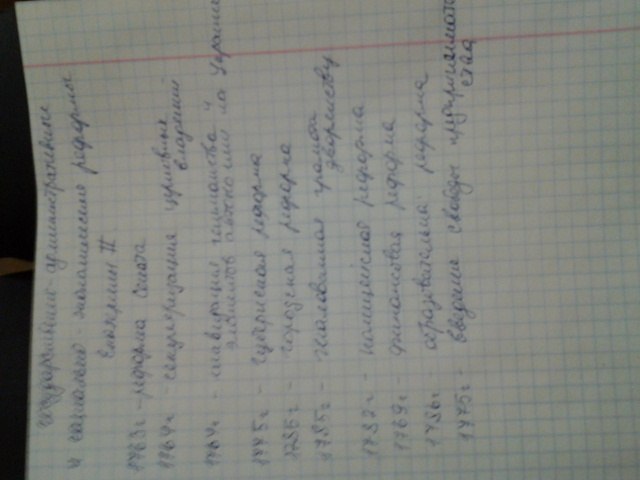 государственно-административные
и социально-экономические реформы
Екатерины II
1763г - реформа Сената
1764г - секуляризация церковных
владений
1764г - ликвидация гетманства и
элементов автономии на Украине
1775г - губернская реформа
1785г - городская реформа
1785г - Жалованная грамота
дворянству
1782г - полицейская реформа
1769г - финансовая реформа
1786г - образовательная реформа
1775г - введение свободы предпринимательства